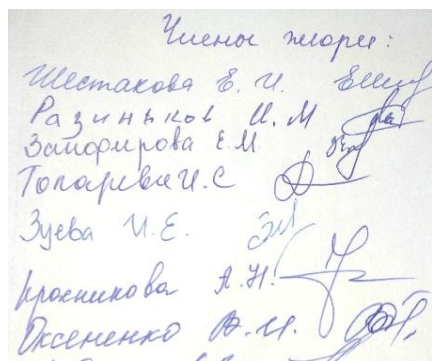 Члены жюри:
Шестакова Е. И.
Разиньков И. М
Замфирова Е.М.
Топаревич И.С
Зуева И. Е.
Красникова А.Н.
Оксененко В. И.